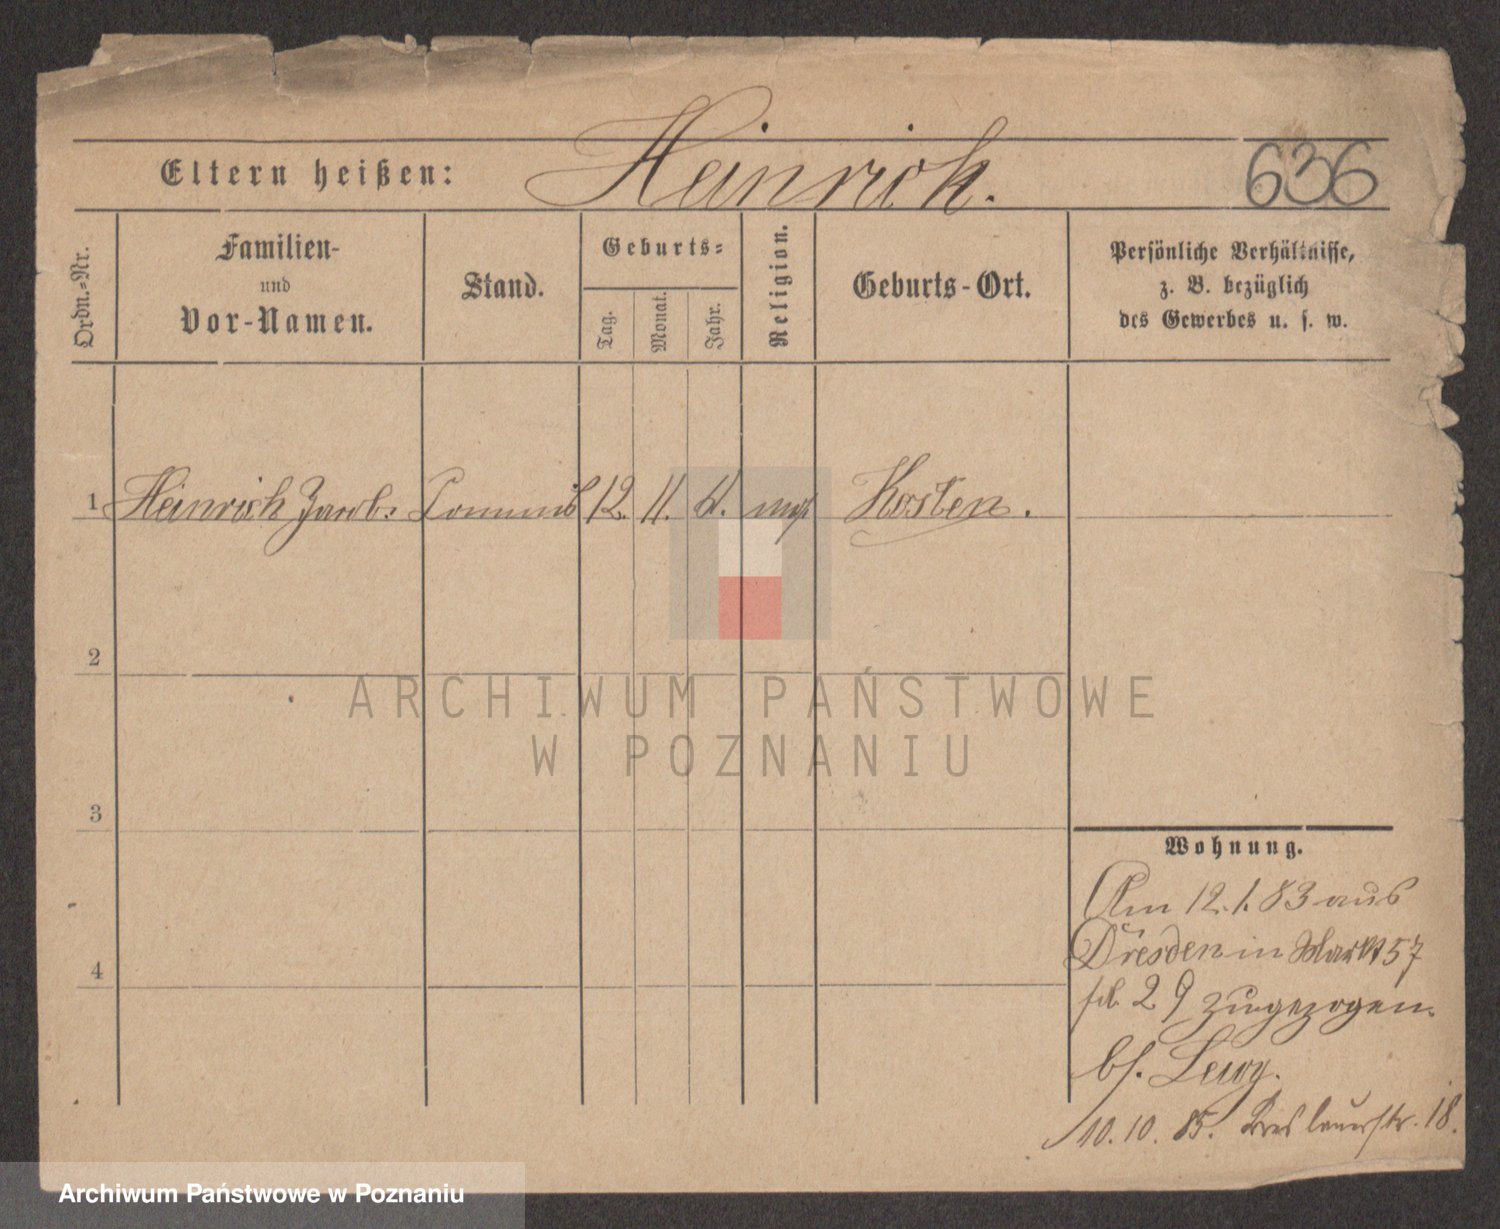 Eltern heißen: Heinrich. 636
Ordn.-Nr.
Familien-
und
Vor-Namen.
Stand.
Geburts-
Tag.
Monat.
Jahr.
Religion.
Geburts-Ort.
Persönliche Verhältnisse,
z. B. bezüglich
des Gewerbes u. s. w.
1 Heinrich Jacob. Commis 12. 11. mos Kosten.
2
3
4
Wohnung.
Am 12.1.83 aus
Dresden in Markt 57
29 zugezogen.
bf. Lewy.
10.10.85. Breslauerstr. 18.
ARCHIWUM PAŃSTWOWE
W POZNANIU
Archiwum Państwowe w Poznaniu